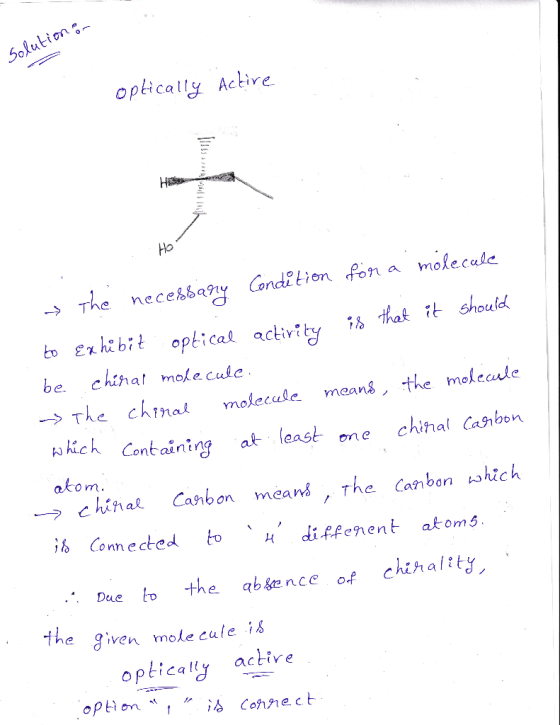 Solution:-
optically Active
H
Ho
→ The necessary Condition for a molecule
to Exhibit optical activity is that it should
be chiral molecule.
→ The chiral molecule means, the molecule
which Containing at least one chiral Carbon
atom.
→ chiral Carbon means, The Carbon which
is Connected to '4' different atoms.
∴ Due to the absence of chirality,
the given molecule is
optically active
option "1" is correct